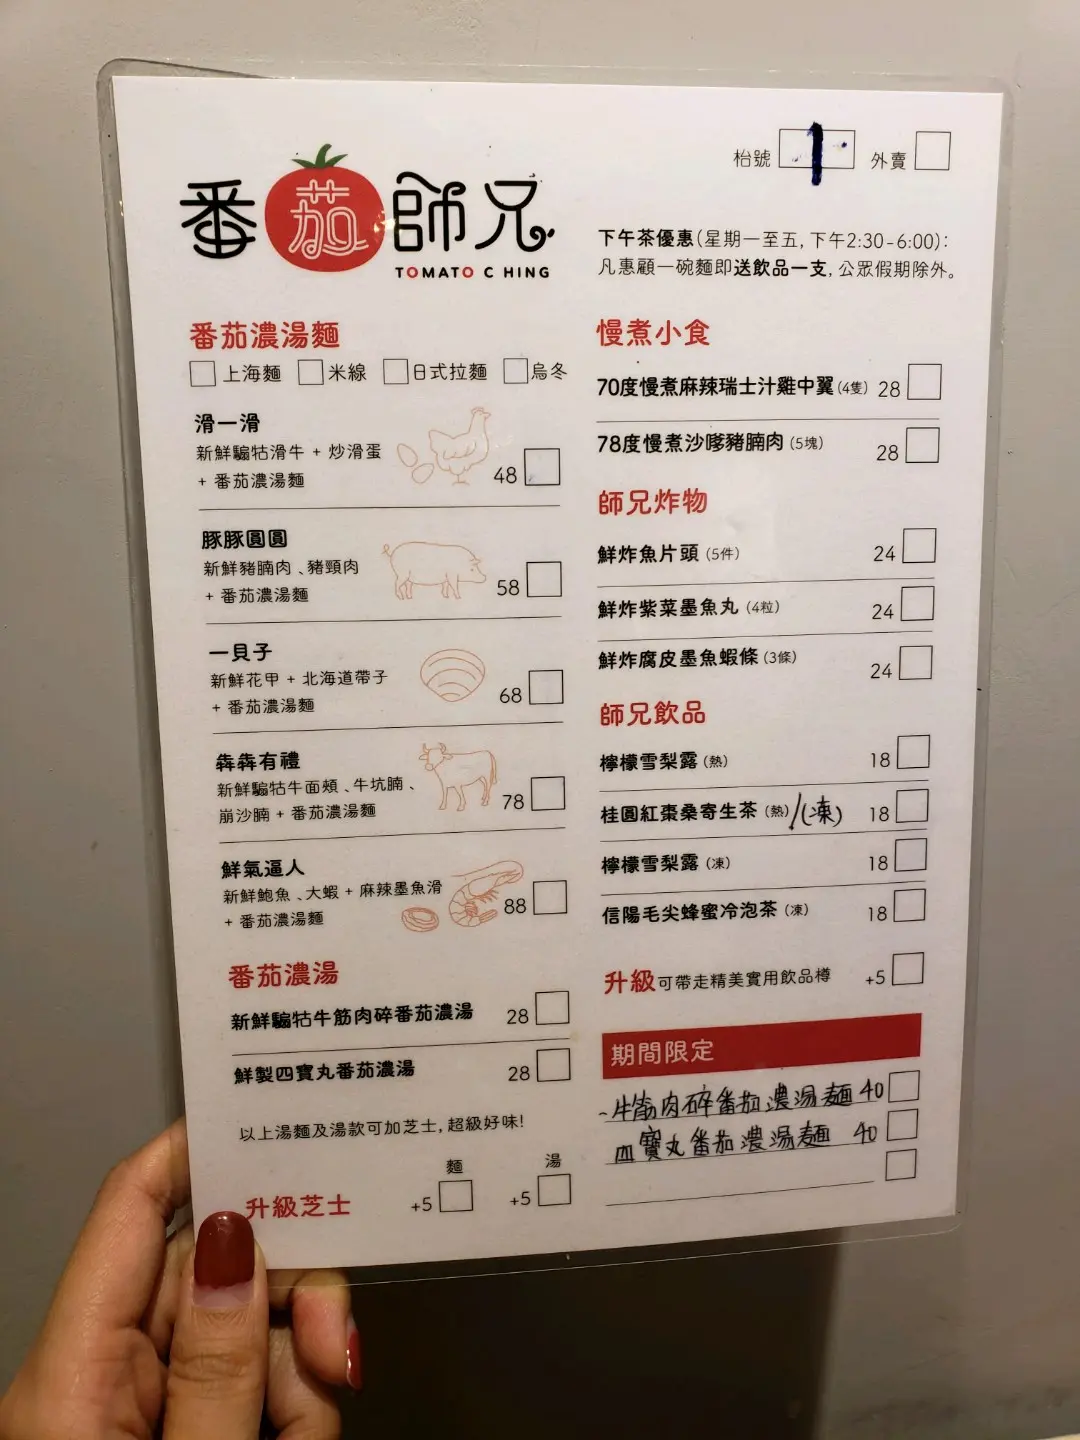 枱號 1 外賣
番茄師兄
TOMATO CHING
下午茶優惠(星期一至五,下午2:30-6:00):
凡惠顧一碗麵即送飲品一支,公眾假期除外。
番茄濃湯麵
上海麵 米線 日式拉麵 烏冬
滑一滑
新鮮騸牯滑牛 + 炒滑蛋
+ 番茄濃湯麵 48
豚豚圓圓
新鮮豬腩肉、豬頸肉
+ 番茄濃湯麵 58
一貝子
新鮮花甲 + 北海道帶子
+ 番茄濃湯麵 68
犇犇有禮
新鮮騸牯牛面頰、牛坑腩、
崩沙腩 + 番茄濃湯麵 78
鮮氣逼人
新鮮鮑魚、大蝦 + 麻辣墨魚滑
+ 番茄濃湯麵 88
番茄濃湯
新鮮騸牯牛筋肉碎番茄濃湯 28
鮮製四寶丸番茄濃湯 28
以上湯麵及湯款可加芝士,超級好味!
麵 湯
升級芝士 +5 +5
慢煮小食
70度慢煮麻辣瑞士汁雞中翼(4隻) 28
78度慢煮沙嗲豬腩肉(5塊) 28
師兄炸物
鮮炸魚片頭(5件) 24
鮮炸紫菜墨魚丸(4粒) 24
鮮炸腐皮墨魚蝦條(3條) 24
師兄飲品
檸檬雪梨露(熱) 18
桂圓紅棗桑寄生茶(熱)/(凍) 18
檸檬雪梨露(凍) 18
信陽毛尖蜂蜜冷泡茶(凍) 18
升級可帶走精美實用飲品樽 +5
期間限定
牛筋肉碎番茄濃湯麵 40
四寶丸番茄濃湯麵 40